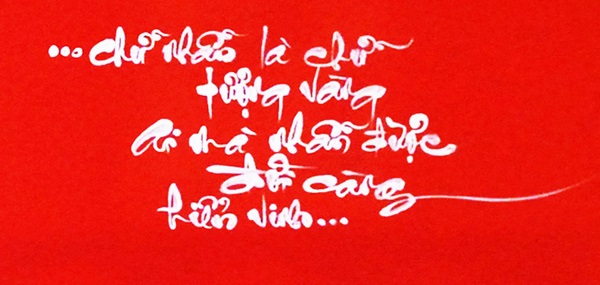 ...chữ nhẫn là chữ
tượng vàng
ai mà nhẫn được
đời càng
hiển vinh...